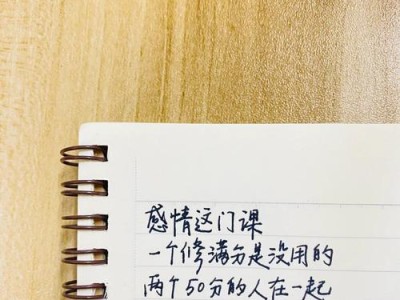 感情这门课
一个修满分是没用的
两个50分的人在一起